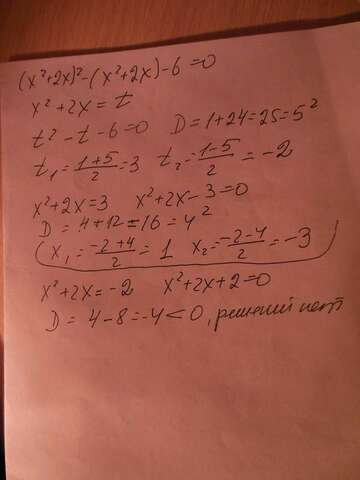 (x²+2x)²-(x²+2x)-6=0
x²+2x=t
t²-t-6=0 D=1+24=25=5²
t₁=(1+5)/2=3 t₂=(1-5)/2=-2
x²+2x=3 x²+2x-3=0
D=4+12=16=4²
x₁=(-2+4)/2=1 x₂=(-2-4)/2=-3
x²+2x=-2 x²+2x+2=0
D=4-8=-4<0, решений нет